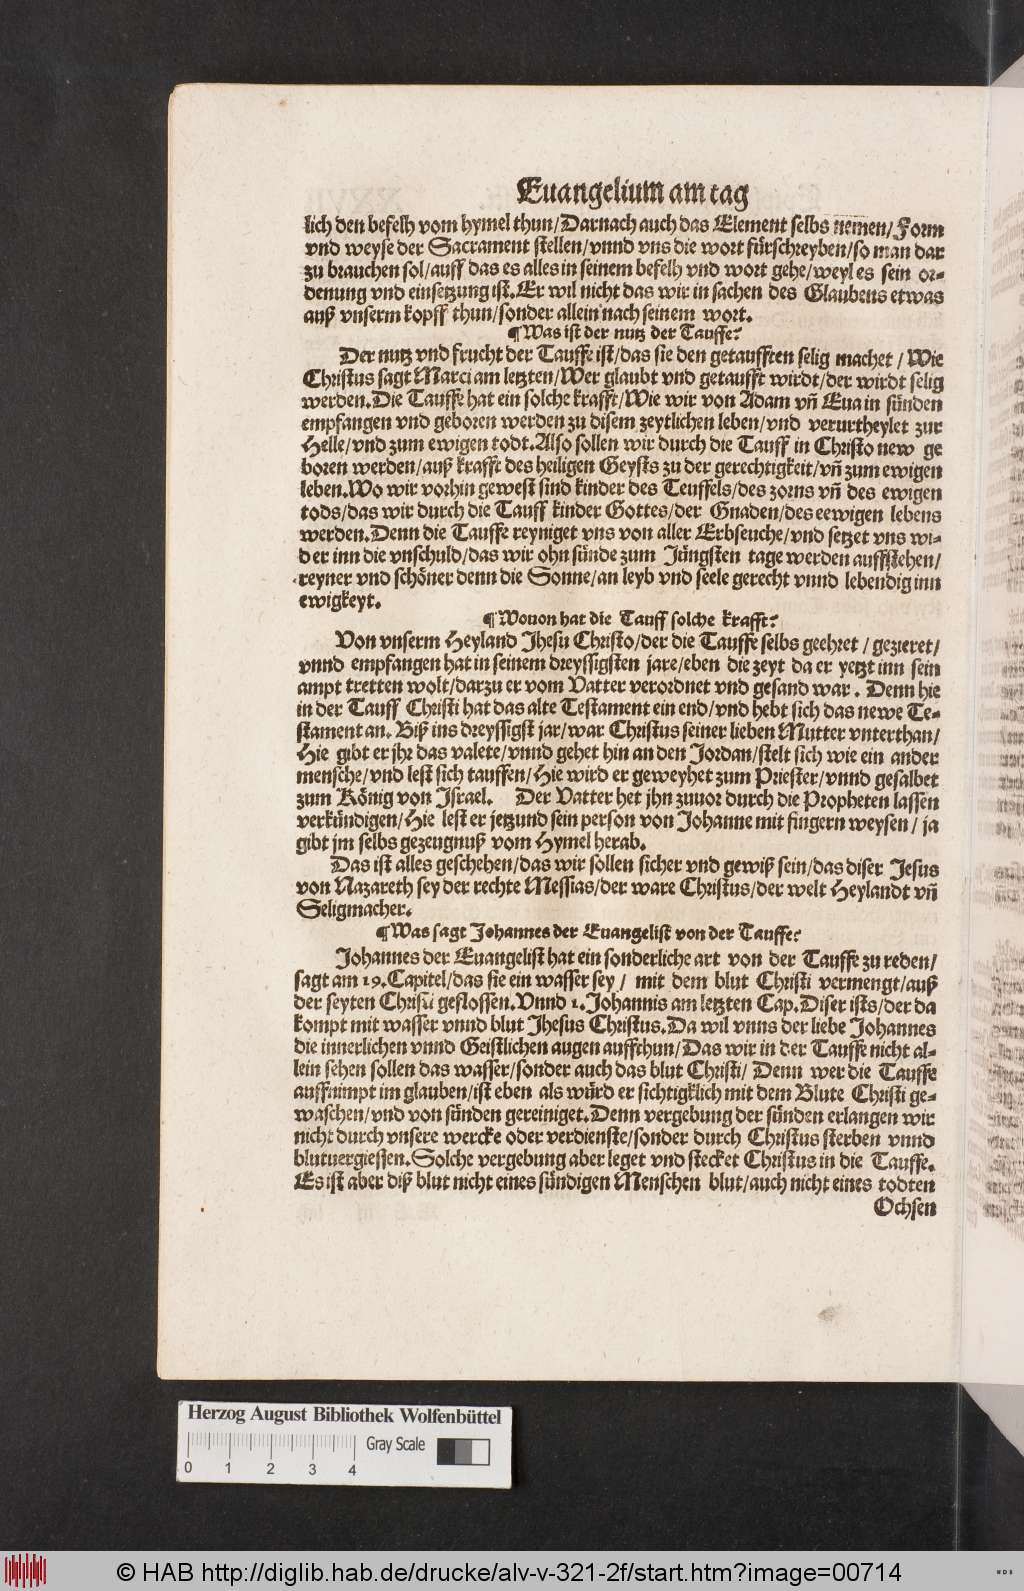 Euangelium am tag
lich den befelh vom hymel thun/Darnach auch das Element selbs nemen/Form
vnd weyse der Sacrament stellen/vnnd vns die wort fürschreyben/so man dar
zu brauchen sol/auff das es alles in seinem befelh vnd wort gehe/weyl es sein or-
denung vnd einsetzung ist.Er wil nicht das wir in sachen des Glaubens etwas
auß vnserm kopff thun/sonder allein nach seinem wort.
¶Was ist der nutz der Tauffe?
Der nutz vnd frucht der Tauffe ist/das sie den getaufften selig machet/Wie
Christus sagt Marci am letzten/Wer glaubt vnd getaufft wirdt/der wirdt selig
werden.Die Tauffe hat ein solche krafft/Wie wir von Adam vñ Eua in sünden
empfangen vnd geboren werden zu disem zeytlichen leben/vnd verurtheylet zur
Helle/vnd zum ewigen todt.Also sollen wir durch die Tauff in Christo new ge
boren werden/auß krafft des heiligen Geysts zu der gerechtigkeit/vñ zum ewigen
leben.Wo wir vorhin gewest sind kinder des Teuffels/des zorns vñ des ewigen
tods/das wir durch die Tauff kinder Gottes/der Gnaden/des eewigen lebens
werden.Denn die Tauffe reyniget vns von aller Erbseuche/vnd setzet vns wi-
der inn die vnschuld/das wir ohn sünde zum Jüngsten tage werden auffstehen/
reyner vnd schöner denn die Sonne/an leyb vnd seele gerecht vnnd lebendig inn
ewigkeyt.
¶Wouon hat die Tauff solche krafft?
Von vnserm Heyland Jhesu Christo/der die Tauffe selbs geehret/gezieret/
vnnd empfangen hat in seinem dreyssigsten jare/eben die zeyt da er yetzt inn sein
ampt tretten wolt/darzu er vom Vatter verordnet vnd gesand war. Denn hie
in der Tauff Christi hat das alte Testament ein end/vnd hebt sich das newe Te-
stament an. Biß ins dreyssigst jar/war Christus seiner lieben Mutter vnterthan/
Hie gibt er jhr das valete/vnnd gehet hin an den Jordan/stelt sich wie ein ander
mensche/vnd lest sich tauffen/Hie wird er geweyhet zum Priester/vnnd gesalbet
zum König von Israel. Der Vatter het jhn zuuor durch die Propheten lassen
verkündigen/Hie lest er jetzund sein person von Johanne mit fingern weysen/ja
gibt jm selbs gezeugnuß vom Hymel herab.
Das ist alles geschehen/das wir sollen sicher vnd gewiß sein/das diser Jesus
von Nazareth sey der rechte Messias/der ware Christus/der welt Heylandt vñ
Seligmacher.
¶Was sagt Johannes der Euangelist von der Tauffe?
Johannes der Euangelist hat ein sonderliche art von der Tauffe zu reden/
sagt am 19.Capitel/das sie ein wasser sey/ mit dem blut Christi vermengt/auß
der seyten Christi geflossen.Vnnd 1.Johannis am letzten Cap.Diser ists/der da
kompt mit wasser vnnd blut Jhesus Christus.Da wil vnns der liebe Johannes
die innerlichen vnnd Geistlichen augen auffthun/Das wir in der Tauffe nicht al-
lein sehen sollen das wasser/sonder auch das blut Christi/ Denn wer die Tauffe
auffnimpt im glauben/ist eben als würd er sichtigklich mit dem Blute Christi ge-
waschen/vnd von sünden gereiniget.Denn vergebung der sünden erlangen wir
nicht durch vnsere wercke oder verdienste/sonder durch Christus sterben vnnd
blutuergiessen.Solche vergebung aber leget vnd stecket Christus in die Tauffe.
Es ist aber diß blut nicht eines sündigen Menschen blut/auch nicht eines todten
Ochsen
Herzog August Bibliothek Wolfenbüttel
Gray Scale
0 1 2 3 4
© HAB http://diglib.hab.de/drucke/alv-v-321-2f/start.htm?image=00714